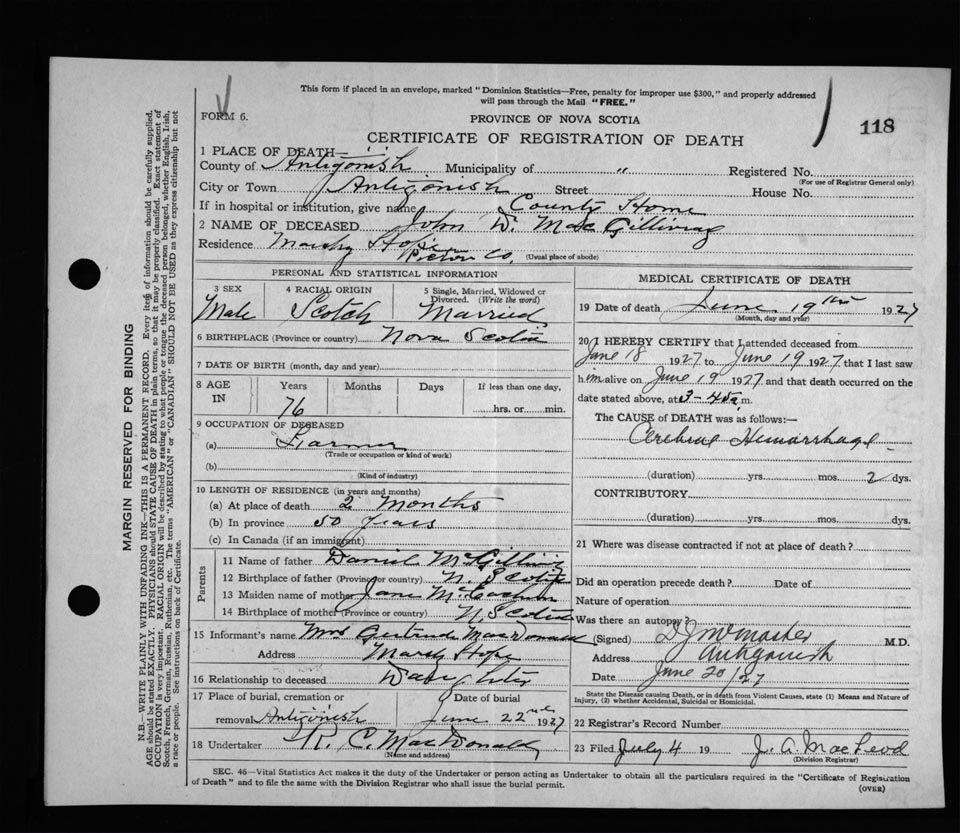 This form if placed in an envelope, marked "Dominion Statistics—Free, penalty for improper use $300," and properly addressed
will pass through the Mail "FREE."
FORM 6.
PROVINCE OF NOVA SCOTIA
118
CERTIFICATE OF REGISTRATION OF DEATH
1 PLACE OF DEATH—
County of Antigonish Municipality of " Registered No.
(For use of Registrar General only)
City or Town Antigonish Street House No.
If in hospital or institution, give name County Home
2 NAME OF DECEASED John D. MacGillivray
Residence Marshy Hope Pictou Co. (Usual place of abode)
PERSONAL AND STATISTICAL INFORMATION
3 SEX 4 RACIAL ORIGIN 5 Single, Married, Widowed or
Divorced. (Write the word)
Male Scotch Married
6 BIRTHPLACE (Province or country) Nova Scotia
7 DATE OF BIRTH (month, day and year)
8 AGE IN Years Months Days If less than one day,
76 hrs. or min.
9 OCCUPATION OF DECEASED
(a) Farmer
(Trade or occupation or kind of work)
(b)
(Kind of industry)
10 LENGTH OF RESIDENCE (in years and months)
(a) At place of death 2 Months
(b) In province 50 years
(c) In Canada (if an immigrant)
Parents
11 Name of father Daniel McGillivray
12 Birthplace of father (Province or country) N. Scotia
13 Maiden name of mother Jane McEachern
14 Birthplace of mother (Province or country) N. Scotia
15 Informant's name Mrs Gertrude MacDonald
Address Marsh Hope
16 Relationship to deceased Daughter
17 Place of burial, cremation or Date of burial
removal Antigonish June 22nd 1927
18 Undertaker R. C. MacDonald
(Name and address)
MEDICAL CERTIFICATE OF DEATH
19 Date of death June 19th 1927
(Month, day and year)
20 I HEREBY CERTIFY that I attended deceased from
June 18 1927 to June 19 1927 that I last saw
him alive on June 19 1927 and that death occurred on the
date stated above, at 3-45 a m.
The CAUSE of DEATH was as follows:—
Cerebral Hemorrhage
(duration) yrs. mos. 2 dys.
CONTRIBUTORY
(duration) yrs. mos. dys.
21 Where was disease contracted if not at place of death?
Did an operation precede death? Date of
Nature of operation
Was there an autopsy?
(Signed) D J McMaster M.D.
Address Antigonish
Date June 20/27
State the Disease causing Death, or in death from Violent Causes, state (1) Means and Nature of
Injury, (2) whether Accidental, Suicidal or Homicidal.
22 Registrar's Record Number
23 Filed July 4 19 J. A. MacLeod
(Division Registrar)
SEC. 46—Vital Statistics Act makes it the duty of the Undertaker or person acting as Undertaker to obtain all the particulars required in the "Certificate of Registration
of Death" and to file the same with the Division Registrar who shall issue the burial permit.
(OVER)
MARGIN RESERVED FOR BINDING
N.B.—WRITE PLAINLY, WITH UNFADING INK—THIS IS A PERMANENT RECORD. Every item of information should be carefully supplied.
AGE should be stated EXACTLY. PHYSICIANS should STATE CAUSE OF DEATH in plain terms, so that it may be properly classified. Exact statement of
OCCUPATION is very important. RACIAL ORIGIN will be described by stating to what people or tongue the deceased person belonged, whether English, Irish,
Scotch, French, German, Russian, Ruthenian, etc. The terms "AMERICAN" or "CANADIAN" SHOULD NOT BE USED as they express citizenship but not
a race or people. See instructions on back of Certificate.